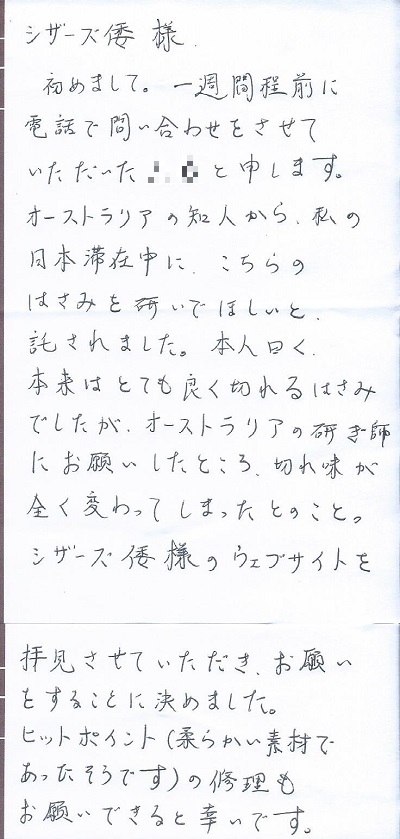 シザーズ倭 様
初めまして。一週間程前に
電話で問い合わせをさせて
いただいた と申します。
オーストラリアの知人から、私の
日本滞在中に、こちらの
はさみを研いでほしいと、
託されました。本人曰く、
本来はとても良く切れるはさみ
でしたが、オーストラリアの研ぎ師
にお願いしたところ、切れ味が
全く変わってしまったとのこと。
シザーズ倭様のウェブサイトを
拝見させていただき、お願い
をすることに決めました。
ヒットポイント(柔らかい素材で
あったそうです)の修理も
お願いできると幸いです。